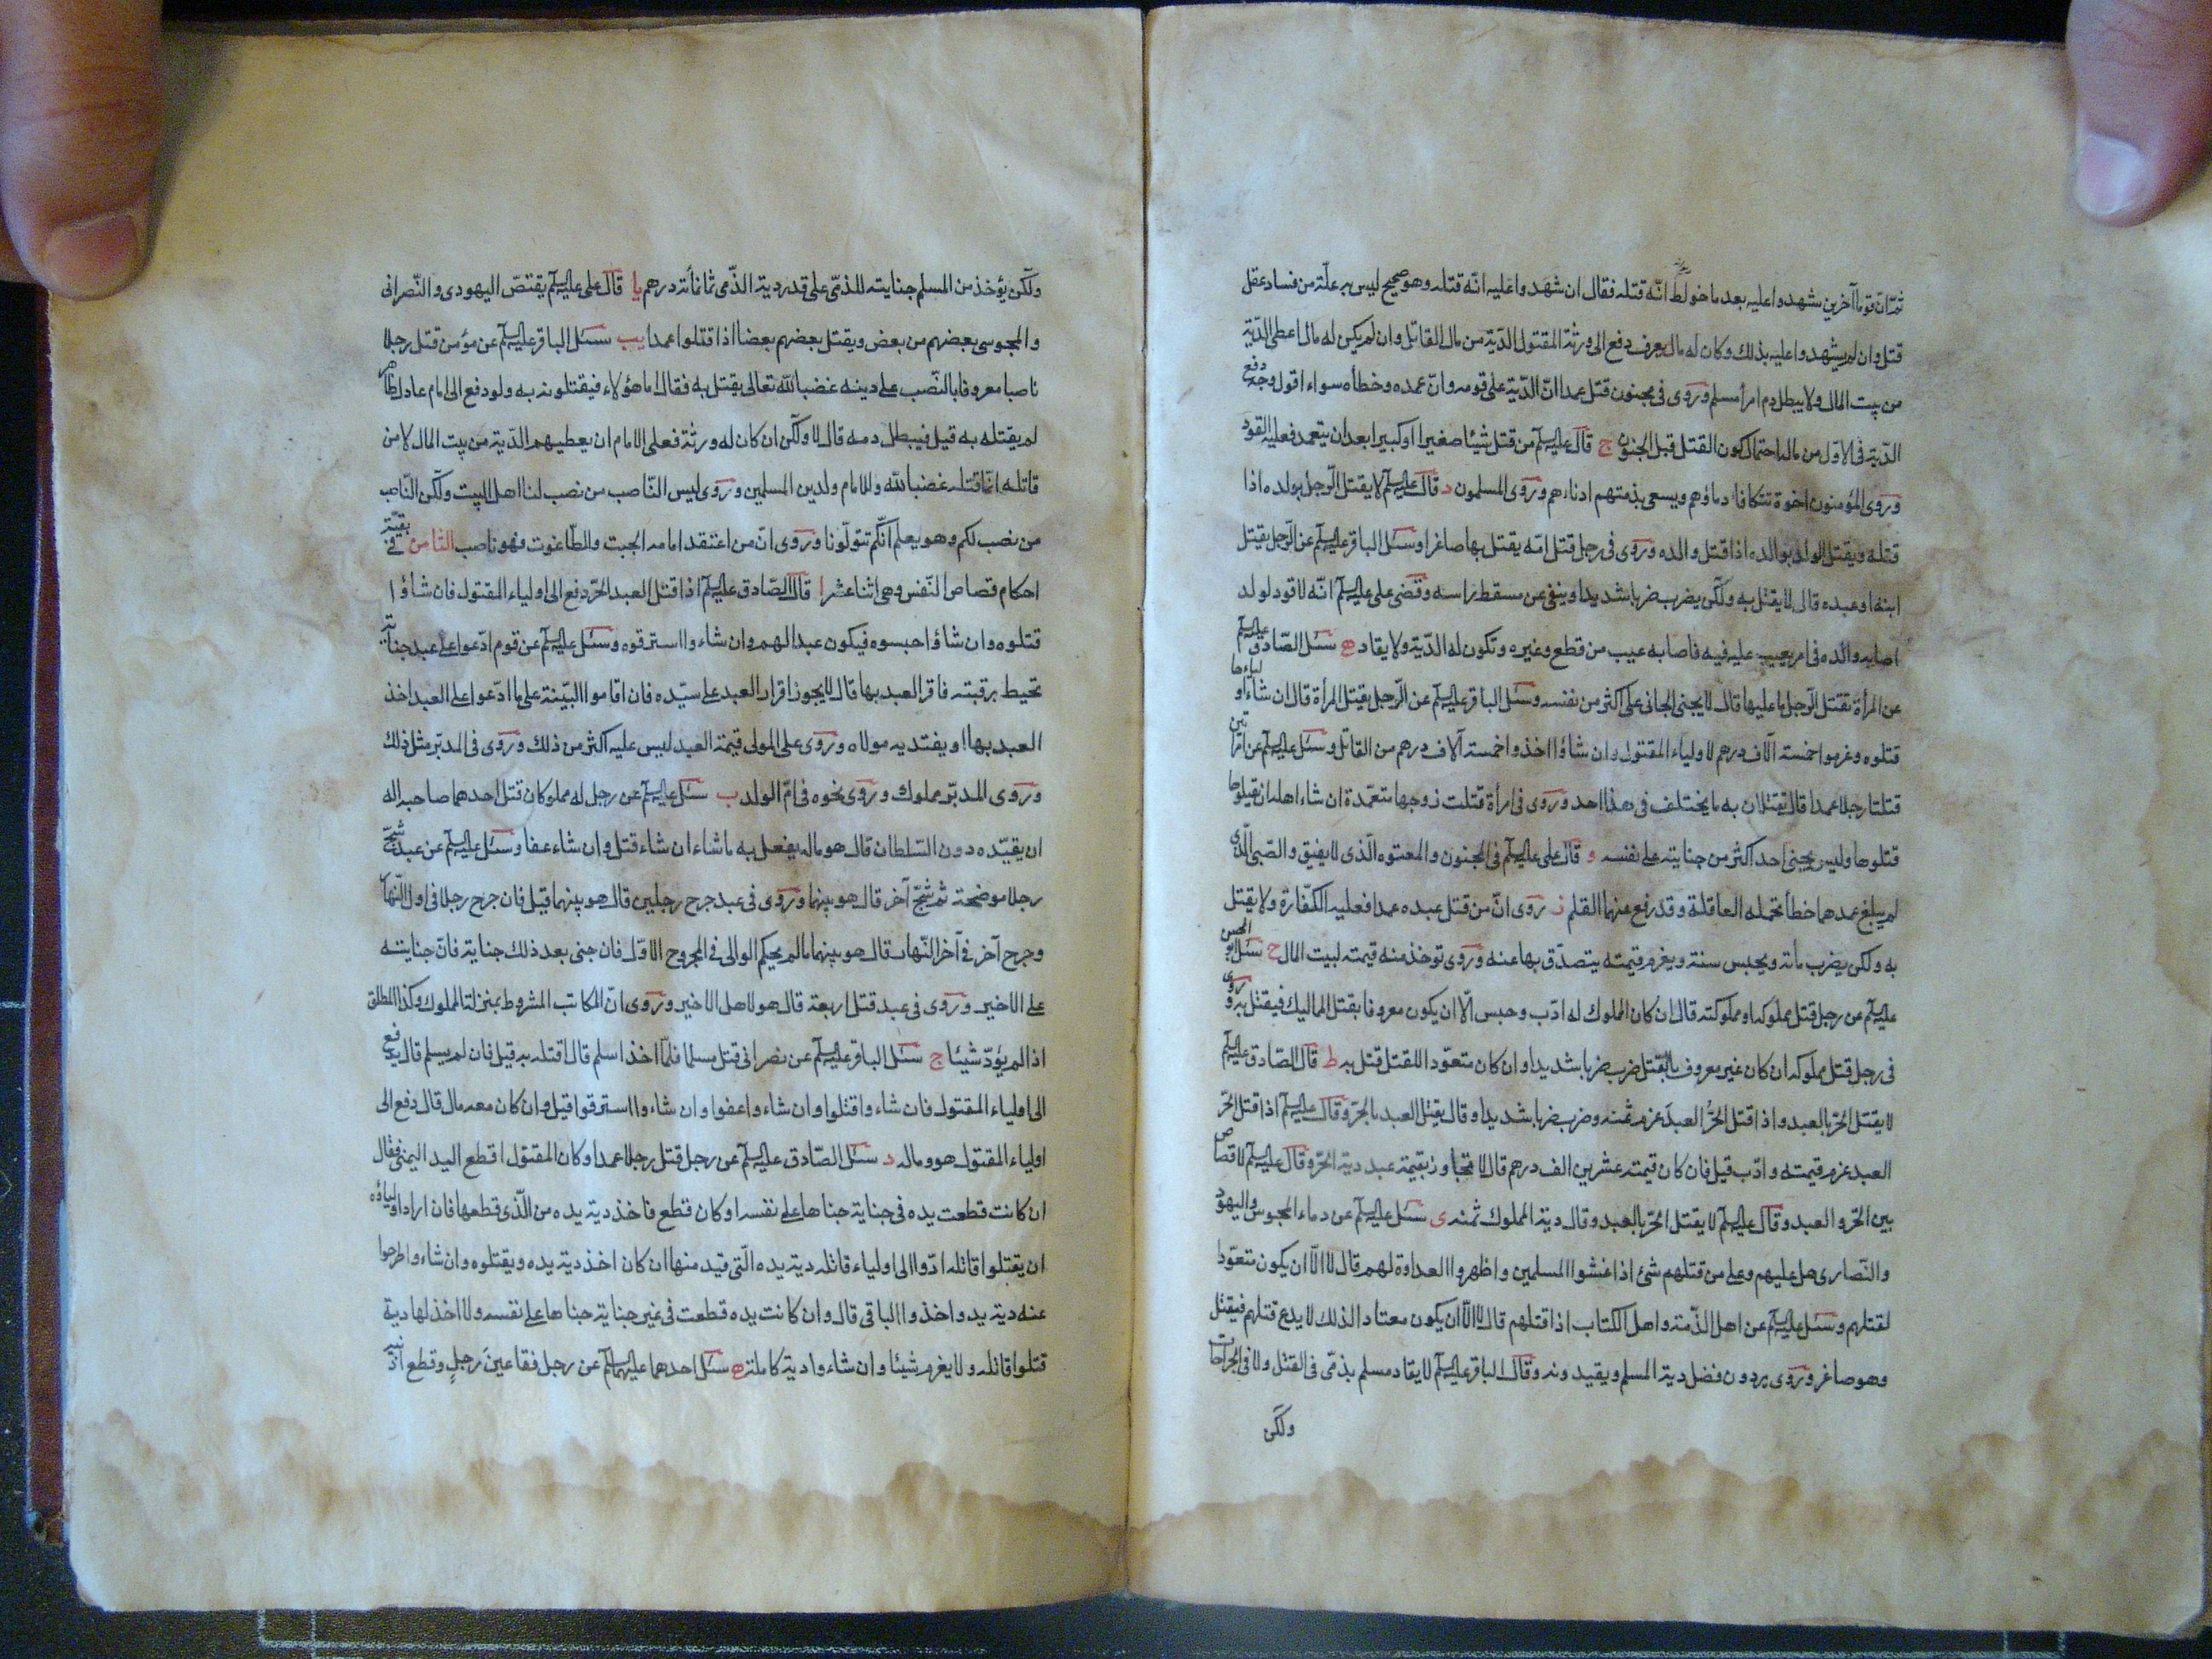 ثمّ انّ قوما آخرين شهدوا عليه بعد ما خولط انّه قتله فقال ان شهدوا عليه انّه قتله وهو صحيح ليس به علّة من فساد عقل
قتل وان لم يشهدوا عليه بذلك وكان له مال يعرف دفع الى ورثة المقتول الدّية من مال القاتل وان لم يكن له مال اعطى الدّية
من بيت المال ولا يبطل دم امرأ مسلم وروى فى مجنون قتل عمدا انّ الدّية على قومه وانّ عمده وخطأه سواء اقول وجه دفع
الدّية فى الاوّل من ماله احتمال كون القتل قبل الجنون ج قال عليه السلم من قتل شيئا صغيرا او كبيرا بعد ان يتعمد فعليه القود
وروى المؤمنون اخوة تتكافا دماؤهم ويسعى بذمتهم ادناهم وروى المسلمون د قال عليه السلم لا يقتل الرّجل بولده اذا
قتله ويقتل الولد بوالده اذا قتل والده وروى فى رجل قتل امّه يقتل بها صاغرا وسئل الباقر عليه السلم عن الرّجل يقتل
ابنه او عبده قال لا يقتل به ولكن يضرب ضربا شديدا وينفى عن مسقط راسه وقضى على عليه السلم انّه لا قود لولد
اصابه والده فى امر يعيب عليه فيه فاصابه عيب من قطع وغيره وتكون له الدّية ولا يقاد ه سئل الصّادق عليه السلم
عن المرأة تقتل الرّجل ما عليها قال لا يجنى الجانى على اكثر من نفسه وسئل الباقر عليه السلم عن الرّجل يقتل المرأة قال ان شاء اولياءها
قتلوه وغرموا خمسة آلاف درهم لاولياء المقتول وان شاؤا اخذوا خمسة آلاف درهم من القاتل وسئل عليه السلم عن امراتين
قتلتا رجلا عمدا قال تقتلان به ما يختلف فى هذا احد وروى فى امرأة قتلت زوجها متعمّدة ان شاء اهله ان يقتلوها
قتلوها وليس يجنى احد اكثر من جنايته على نفسه و قال على عليه السلم فى المجنون والمعتوه الّذى لا يفيق والصّبى الّذى
لم يبلغ عمدهما خطأ تحمله العاقلة وقد رفع عنهما القلم ز روى انّ من قتل عبده عمدا فعليه الكفّارة ولا يقتل
به ولكن يضرب مائة ويحبس سنة ويغرم قيمته يتصدّق بها عنه وروى توخذ منه قيمته لبيت المال ح سئل ابو الحسن
عليه السلم عن رجل قتل مملوكه او مملوكته قال ان كان المملوك له ادّب وحبس الّا ان يكون معروفا بقتل المماليك فيقتل به وروى
فى رجل قتل مملوكه ان كان غير معروف بالقتل ضرب ضربا شديدا وان كان متعوّدا للقتل قتل به ط قال الصّادق عليه السلم
لا يقتل الحرّ بالعبد واذا قتل الحُرُّ العبدَ غرم ثمنه وضرب ضربا شديدا وقال يقتل العبد بالحرّ وقال عليه السلم اذا قتل الحرّ
العبد غرم قيمته وادّب قيل فان كان قيمته عشرين الف درهم قال لا تجاوز بقيمة عبد دية الحرّ وقال عليه السلم لا قصاص
بين الحرّ والعبد وقال عليه السلم لا يقتل الحرّ بالعبد وقال دية المملوك ثمنه ى سئل عليه السلم عن دماء المجوس واليهود
والنّصارى هل عليهم وعلى من قتلهم شئ اذا غشوا المسلمين واظهروا العداوة لهم قال لا الّا ان يكون متعوّدا
لقتلهم وسئل عليه السلم عن اهل الذّمة واهل الكتاب اذا قتلهم قال لا الّا ان يكون معتادا لذلك لا يدع قتلهم فيقتل
وهو صاغر وروى يردون فضل دية المسلم ويقيدونه وقال الباقر عليه السلم لا يقاد مسلم بذمّى فى القتل ولا فى الجراحات
ولكن
ولكن يؤخذ من المسلم جنايته للذمّى على قدر دية الذّمى ثمانمأة درهم يا قال على عليه السلم يقتصّ اليهودى والنّصرانى
والمجوسى بعضهم من بعض ويقتل بعضهم بعضا اذا قتلوا عمدا يب سئل الباقر عليه السلم عن مؤمن قتل رجلا
ناصبا معروفا بالنّصب على دينه غضبا لله تعالى يقتل به فقال اما هؤلاء فيقتلونه به ولو دفع الى امام عادل ظاهر
لم يقتله به قيل فيبطل دمه قال لا ولكن ان كان له ورثة فعلى الامام ان يعطيهم الدّية من بيت المال لا من
قاتله انّما قتله غضبا لله وللامام ولدين المسلمين وروى ليس النّاصب من نصب لنا اهل البيت ولكن النّاصب
من نصب لكم وهو يعلم انّكم تتولّونا وروى انّ من اعتقد امامه الجبت والطّاغوت فهو ناصب الثامن فى بقيّة
احكام قصاص النّفس وهى اثنا عشر ا قال الصّادق عليه السلم اذا قتل العبد الحرّ دفع الى اولياء المقتول فان شاؤا
قتلوه وان شاؤا حبسوه فيكون عبدا لهم وان شاءوا استرقوه وسئل عليه السلم عن قوم ادّعوا على عبد جناية
تحيط برقبته فاقر العبد بها قال لا يجوز اقرار العبد على سيّده فان اقاموا البيّنة على ما ادّعوا على العبد اخذ
العبد بها او يفتديه مولاه وروى على المولى قيمة العبد ليس عليه اكثر من ذلك وروى فى المدبّر مثل ذلك
وروى المدبّر مملوك وروى نحوه فى امّ الولد ب سئل عليه السلم عن رجل له مملوكان قتل احدهما صاحبه اله
ان يقيّده دون السّلطان قال هو ماله يفعل به ما شاء ان شاء قتل وان شاء عفا وسئل عليه السلم عن عبد شجّ
رجلا موضحة ثم شجّ آخر قال هو بينهما وروى فى عبد جرح رجلين قال هو بينهما قيل فان جرح رجلا فى اول النّهار
وجرح آخر فى آخر النّهار قال هو بينهما ما لم يحكم الوالى فى المجروح الاوّل فان جنى بعد ذلك جناية فانّ جنايته
على الاخير وروى فى عبد قتل اربعة قال هو لاهل الاخير وروى انّ المكاتب المشروط بمنزلة المملوك وكذا المطلق
اذا لم يؤدّ شيئا ج سئل الباقر عليه السلم عن نصرانى قتل مسلما فلمّا اخذ اسلم قال اقتله به قيل فان لم يسلم قال يدفع
الى اولياء المقتول فان شاءوا قتلوا وان شاءوا عفوا وان شاءوا استرقوا قيل وان كان معه مال قال دفع الى
اولياء المقتول هو وماله د سئل الصّادق عليه السلم عن رجل قتل رجلا عمدا وكان المقتول اقطع اليد اليمنى فقال
ان كانت قطعت يده فى جناية جناها على نفسه او كان قطع فاخذ دية يده من الّذى قطعها فان اراد اولياؤه
ان يقتلوا قاتله ادّوا الى اولياء قاتله دية يده الّتى قيد منها ان كان اخذ دية يده ويقتلوه وان شاءوا طرحوا
عنه دية يد واخذوا الباقى قال وان كانت يده قطعت فى غير جناية جناها على نفسه ولا اخذ لها دية
قتلوا قاتله ولا يغرم شيئا وان شاءوا دية كاملة ه سئل احدهما عليهما السلم عن رجل فقا عينَ رجلٍ وقطع اذنيه